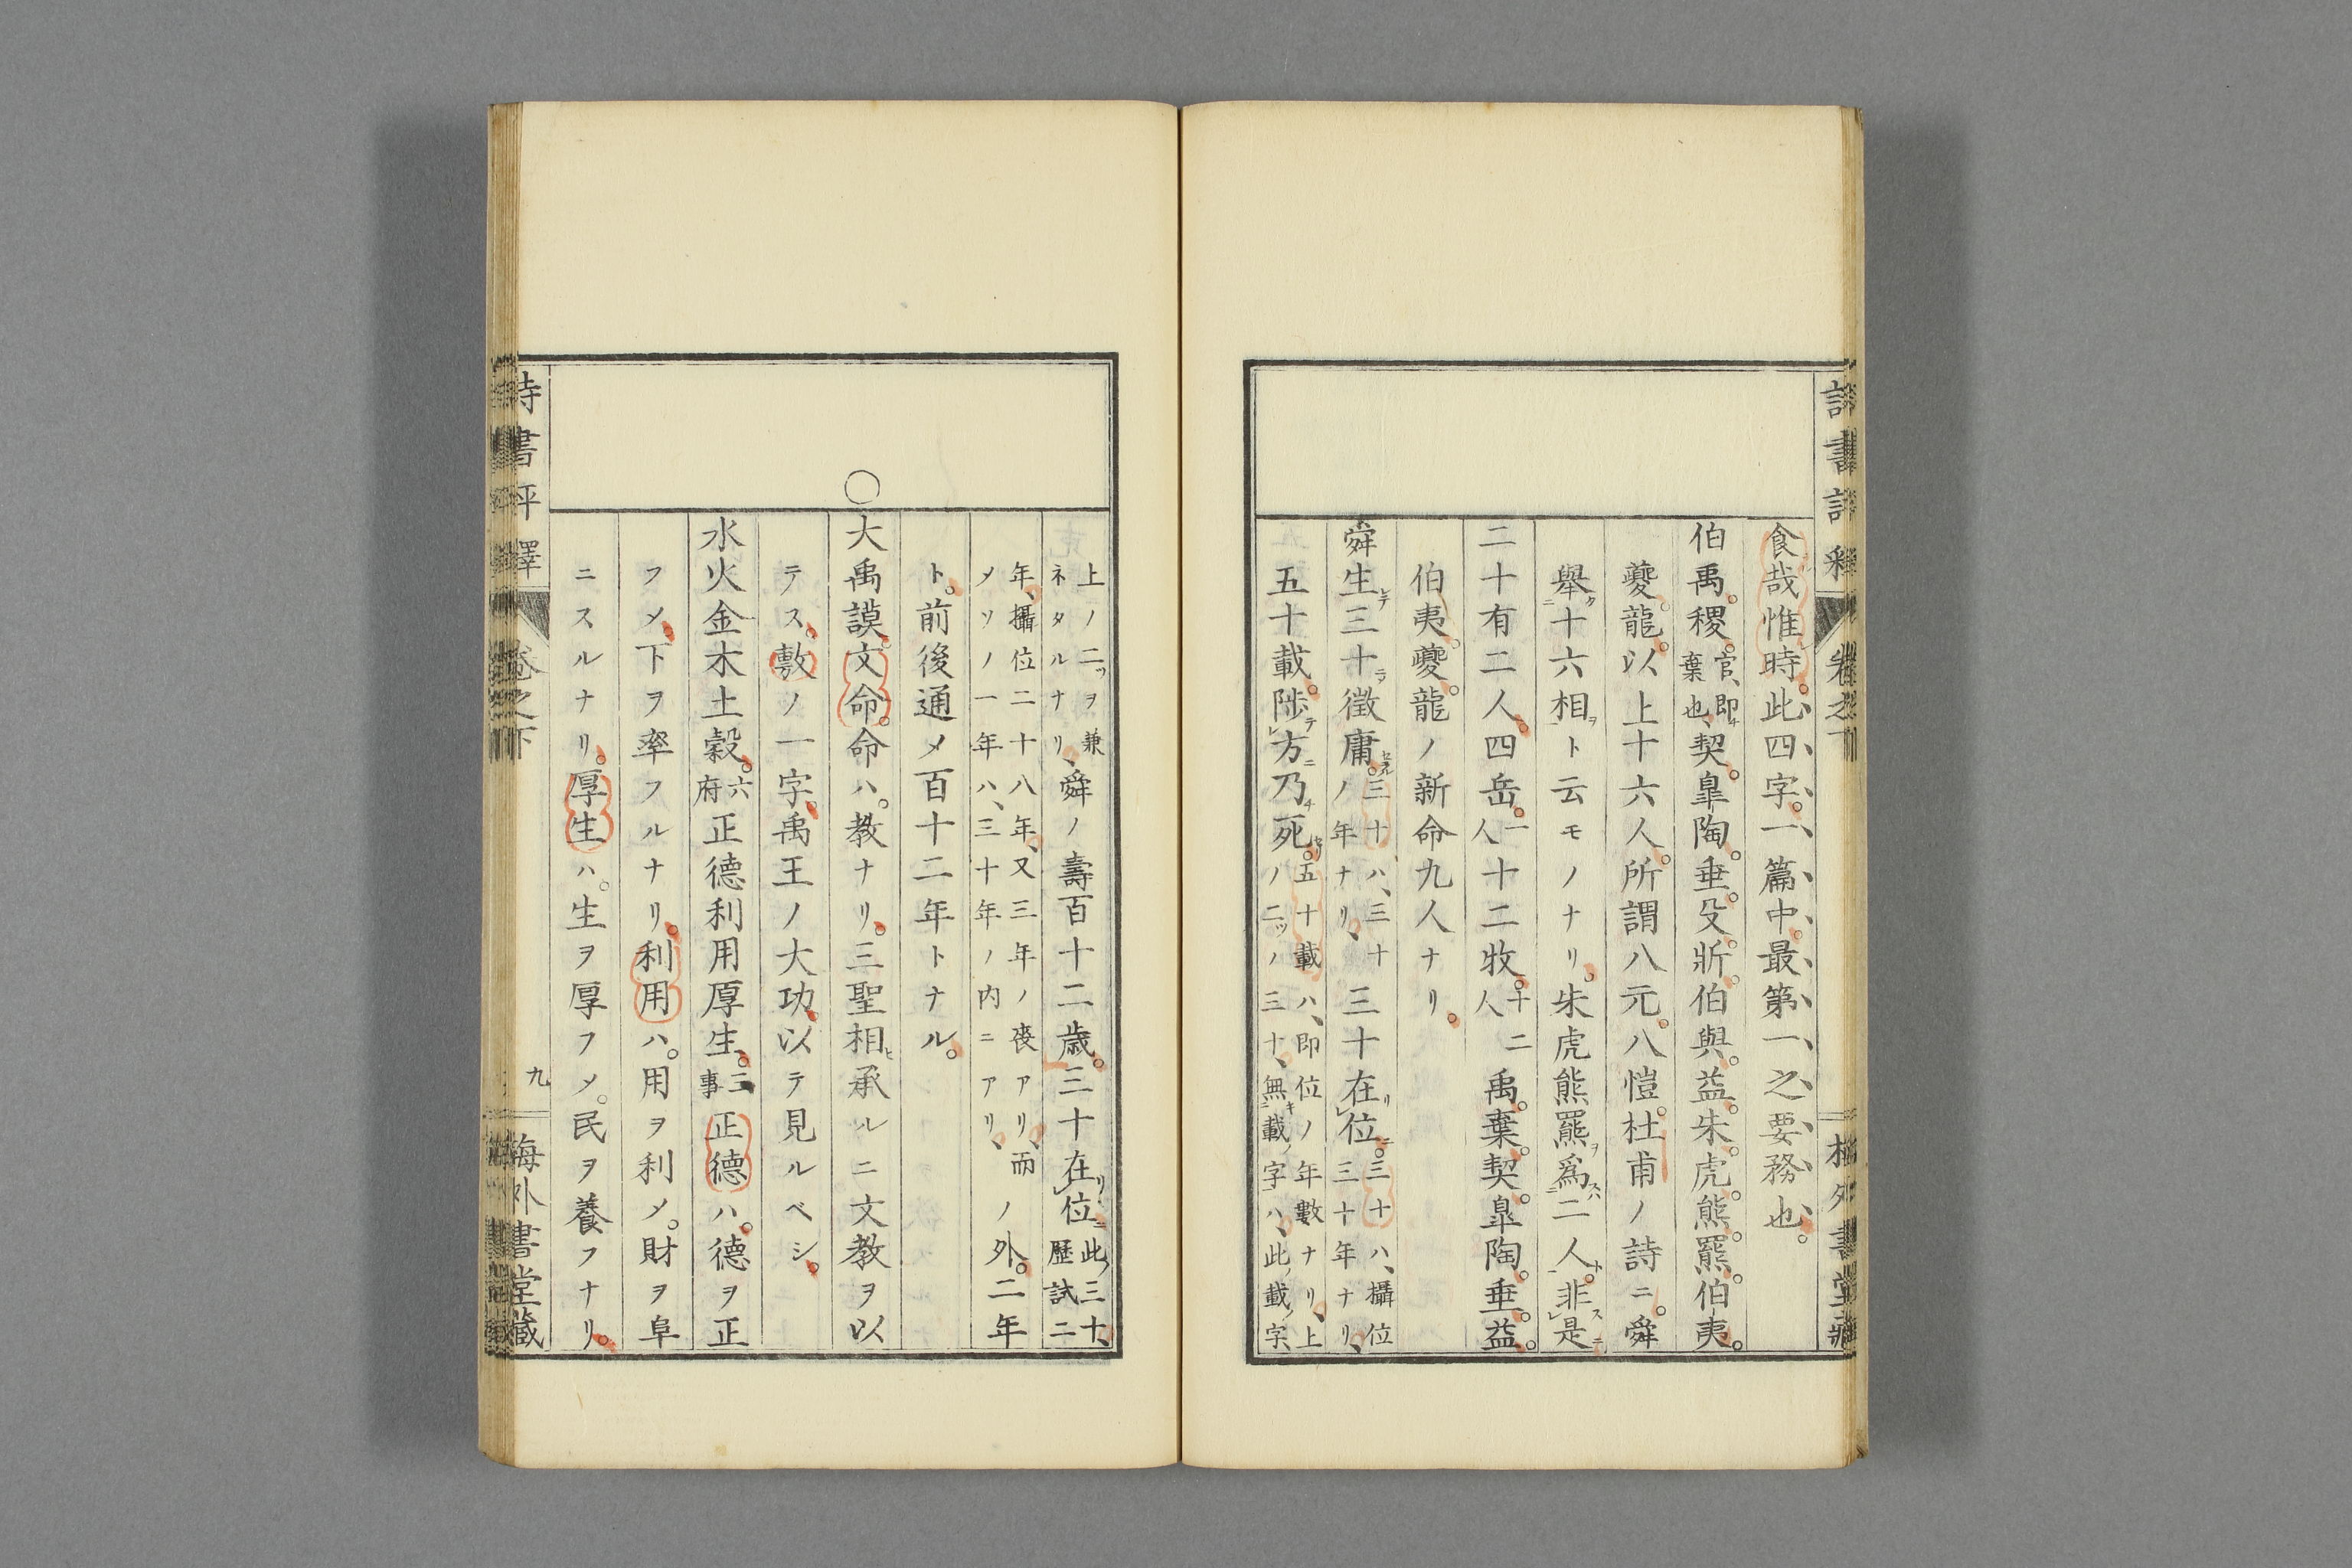 食哉惟時。此四字。一篇中。最第一之要務也。
伯禹。稷。官、即チ棄也、契。皐陶。垂。殳斨。伯與。益。朱虎。熊。羆。伯夷。
夔。龍。以上十六人。所謂八元。八愷。杜甫ノ詩ニ。舜
舉ク二十六相ヲ一ト云モノナリ。朱虎熊羆ヲ爲スハ二二人ト一。非スレ是ニ
二十有二人。四岳。一人十二牧。十二人 禹。棄。契。皐陶。垂。益。
伯夷。夔。龍ノ新命九人ナリ。
舜生レテ三十ニテ徵庸セラル。三十ハ、三十ノ年ナリ、三十在リレ位ニ。三十ハ、攝位三十年ナリ、
五十載。陟テレ方ニ乃チ死セリ。五十載ハ、即位ノ年數ナリ、上ノ二ツノ三十、無キ二載ノ字一ハ、此ノ載ノ字、
上ノ二ツヲ兼ネタルナリ、舜ノ壽百十二歳。三十在リレ位ニ此ノ三十、歷試二
年、攝位二十八年、又三年ノ喪アリ、而メソノ一年ハ、三十年ノ内ニアリ、ノ外。二年
ト。前後通メ百十二年トナル。
○大禹謨。文命。命ハ。教ナリ。三聖相ヒ承ルニ文教ヲ以
テス。敷ノ一字。禹王ノ大功。以テ見ルベシ。
水火金木土穀。六府 正德利用厚生。三事 正德ハ。德ヲ正
フメ。下ヲ率フルナリ。利用ハ。用ヲ利メ。財ヲ阜
ニスルナリ。厚生ハ。生ヲ厚フメ。民ヲ養フナリ。
詩書評釋 卷之下 九 梅外書堂藏